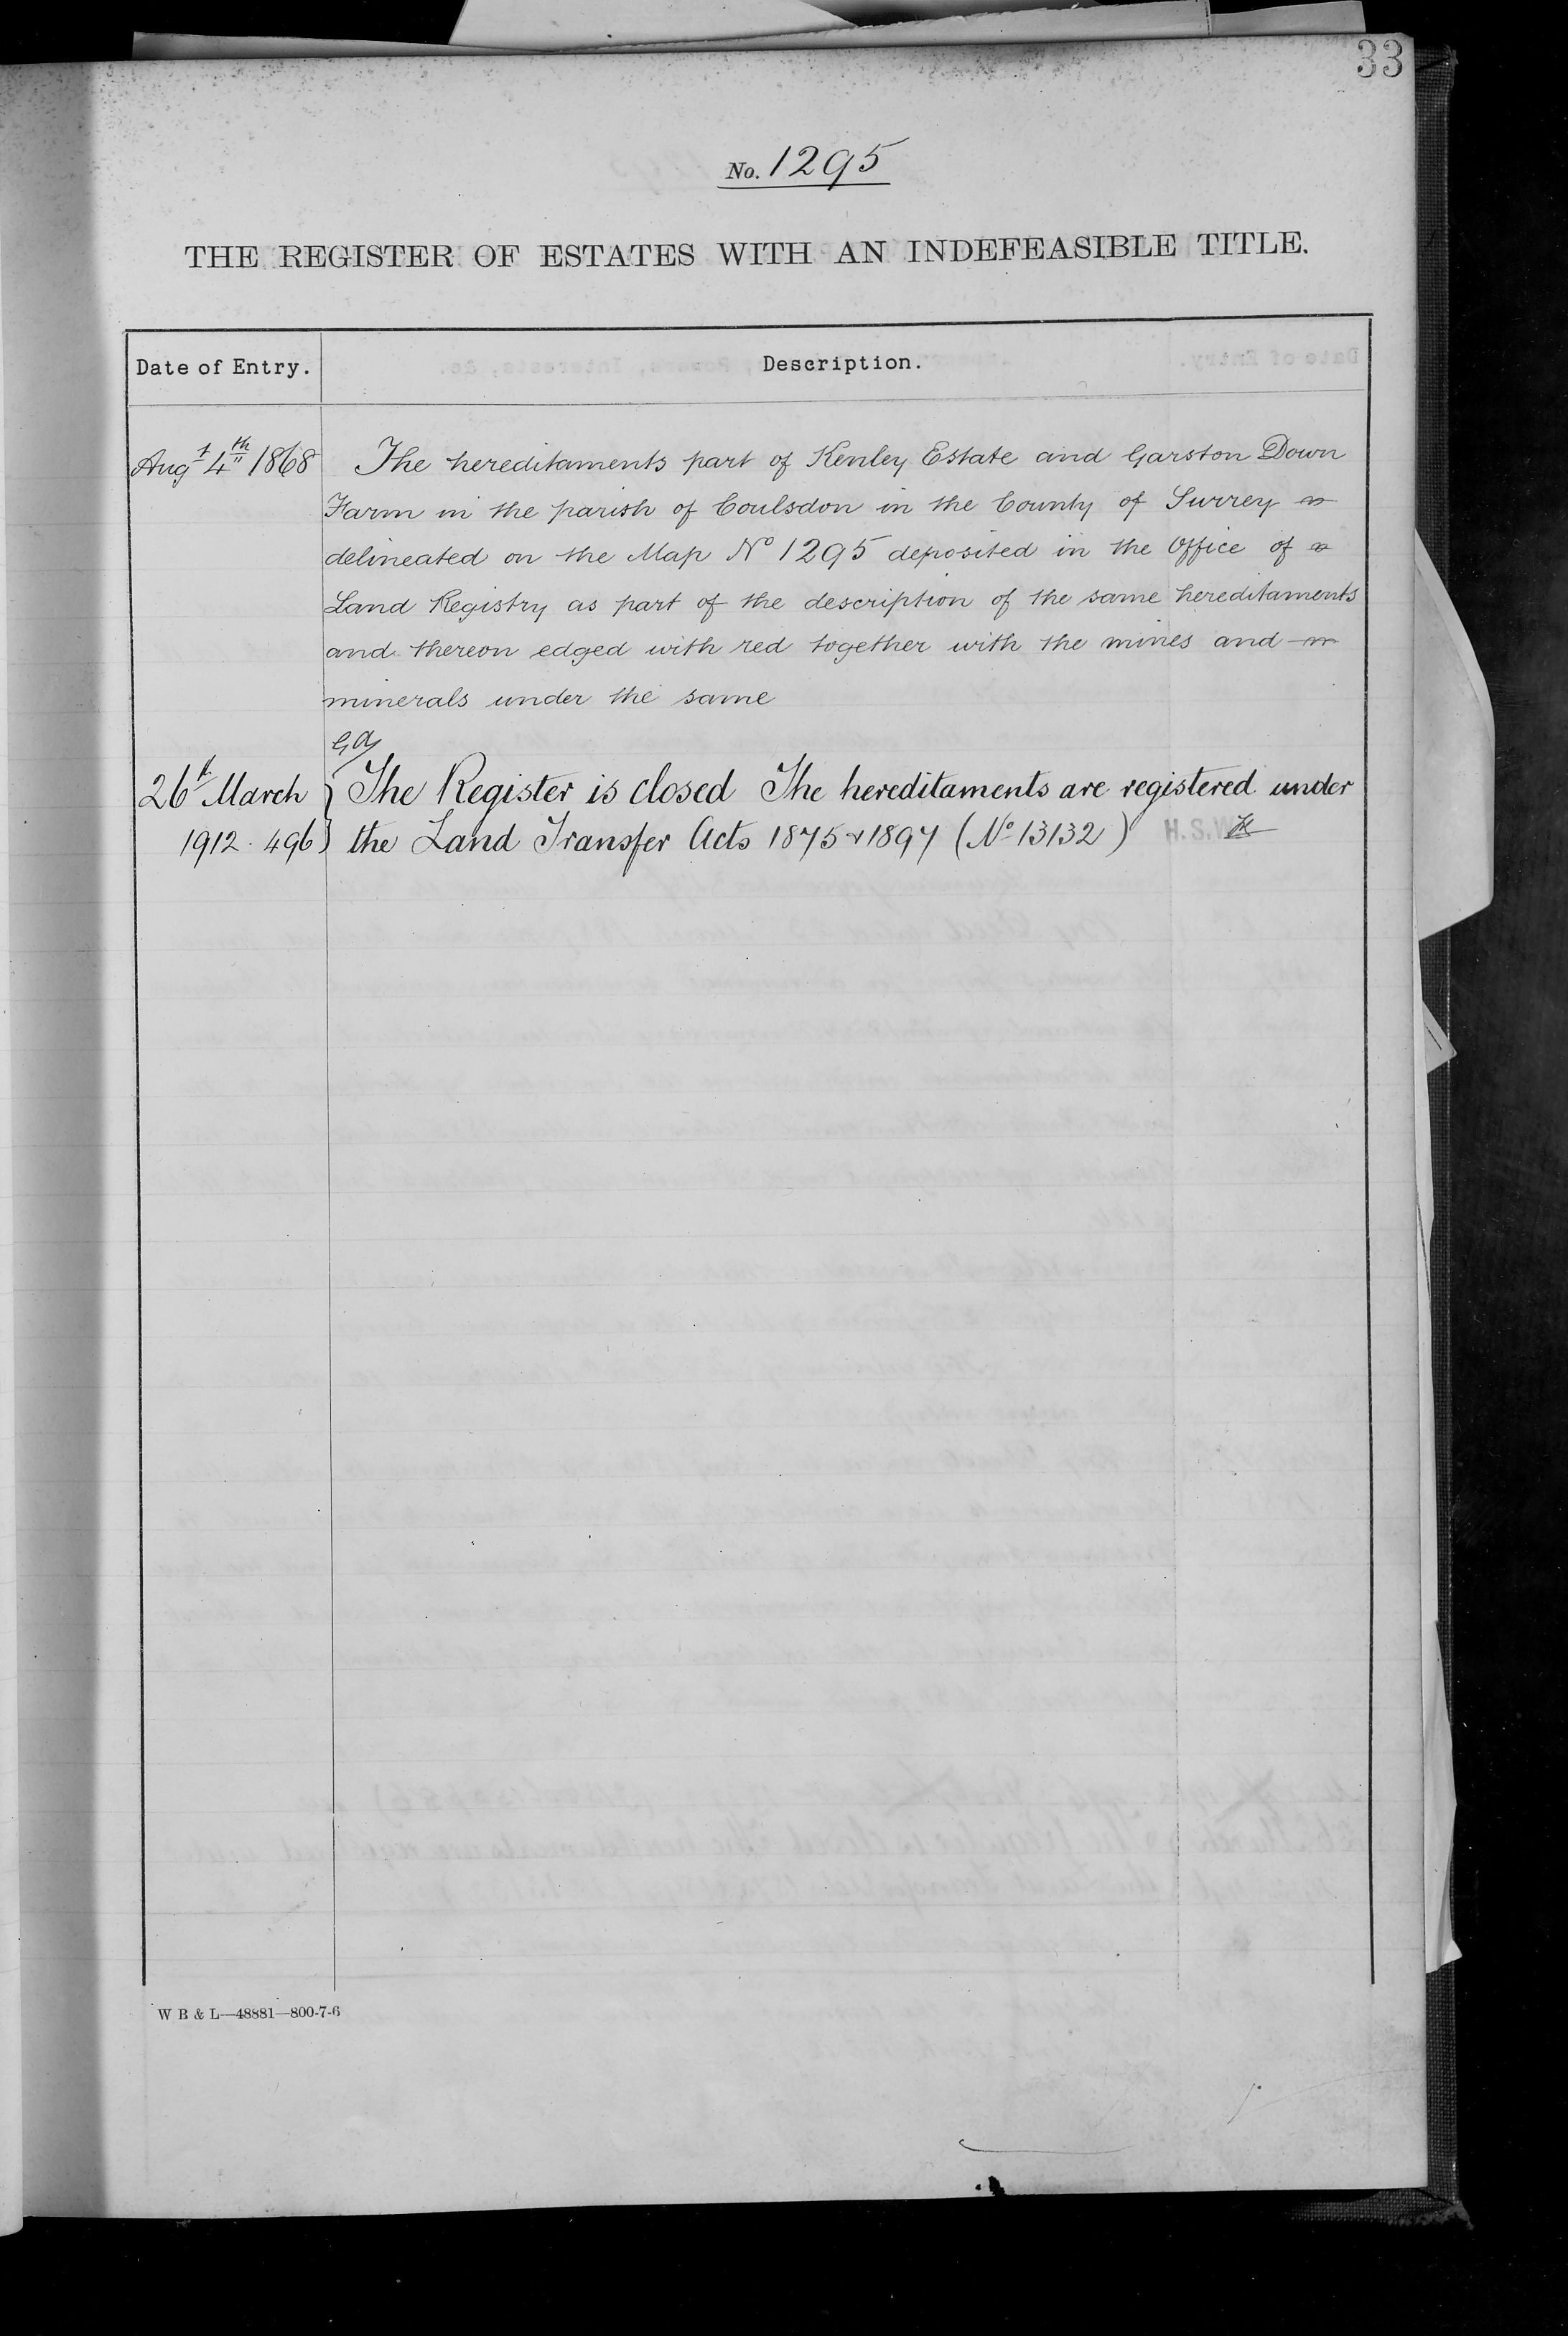 33
No. 1295
THE REGISTER OF ESTATES WITH AN INDEFEASIBLE TITLE.
Date of Entry. Description.
Augt 4th 1868 The hereditaments part of Kenley Estate and Garston Down
Farm in the parish of Coulsdon in the County of Surrey
delineated on the Map No 1295 deposited in the Office of
Land Registry as part of the description of the same hereditaments
and thereon edged with red together with the mines and
minerals under the same
26th March The Register is closed The hereditaments are registered under
1912. 496 the Land Transfer Acts 1875 & 1897 (No 13132) H.S.W
W B & L—48881—800-7-6